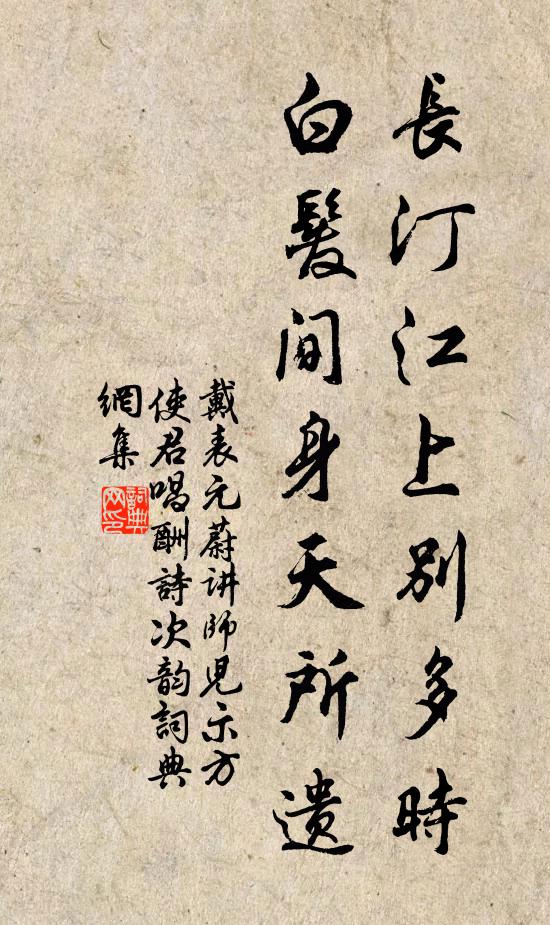 長汀江上別多時
白髮间身天所遗
戴表元蔚讲師見示方
使君唱酬詩次韵詞典
網集
詞典
网印